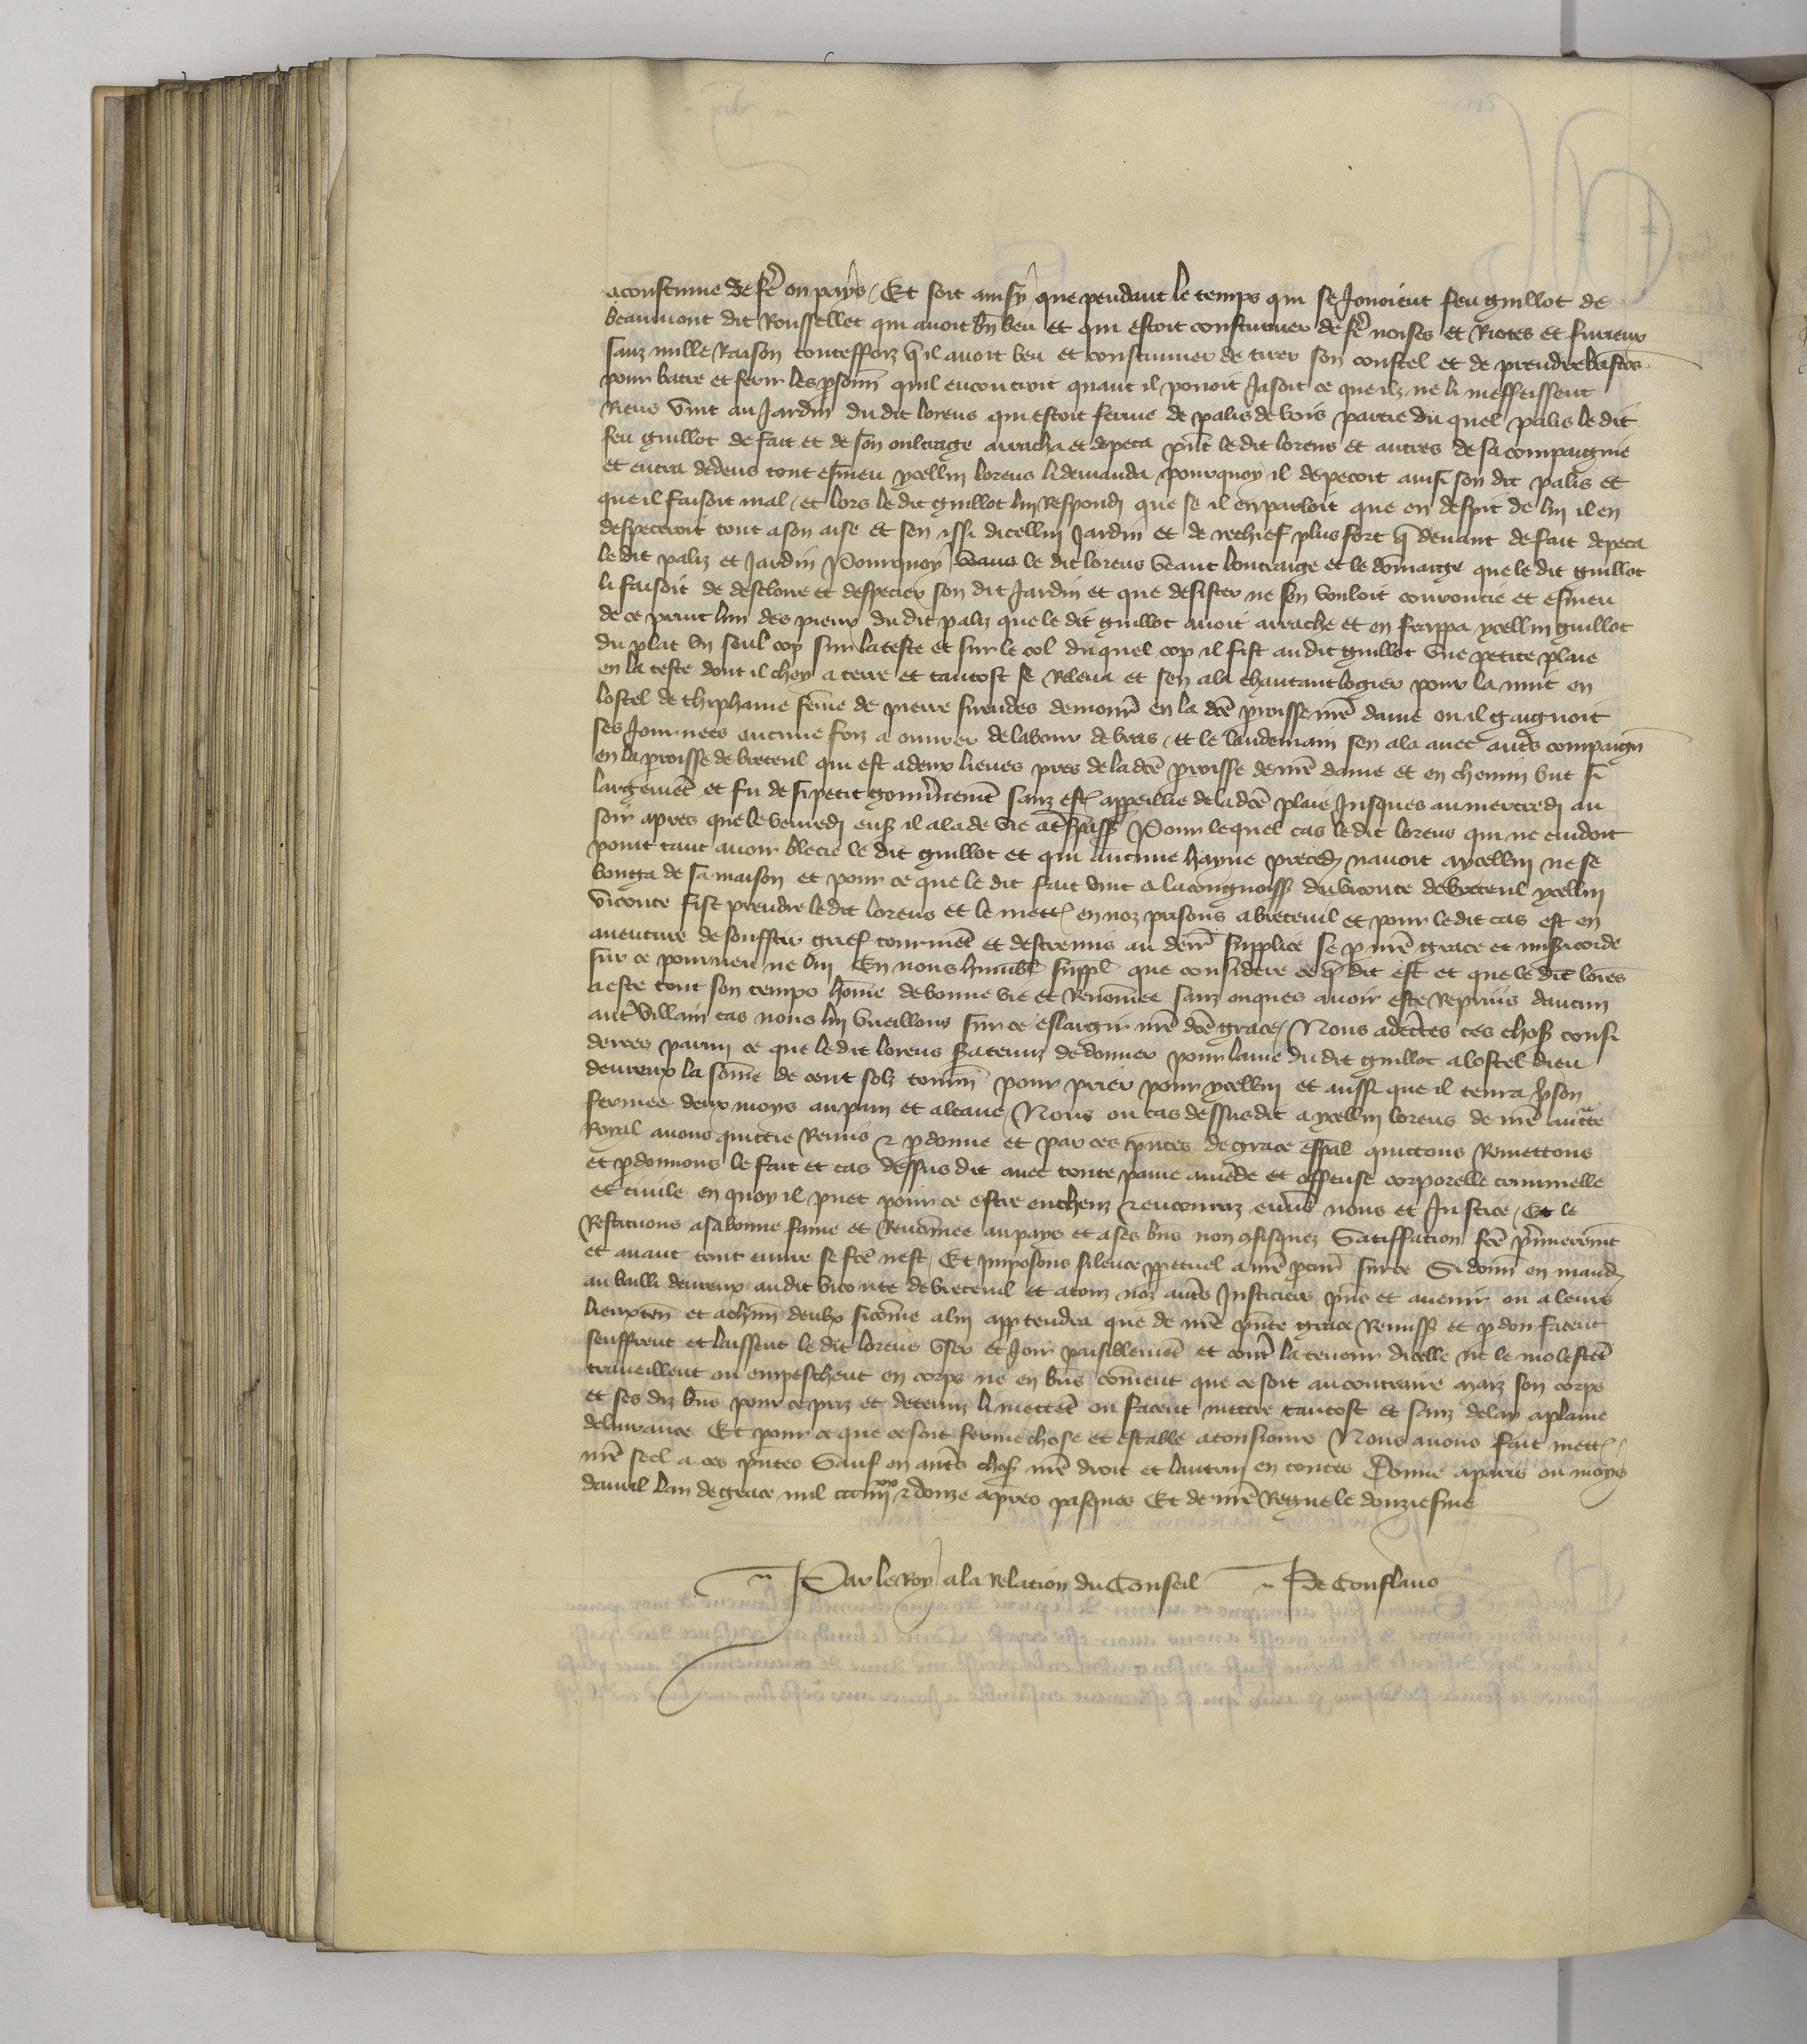 acoustume de fe᷑ ou pays / Et soit ainsy que pendant le temps qui se Jouoient feu guillot de
beaumont dit Roussellet qui auoit bn̄ beu et qui estoit coustumier de fe᷑ noises et Riotes et fureur
sanz nulle Raison toutesfoiz q̄ il auoit beu et coustumier de tirer son coustel et de prendre bastōs
pour batre et ferir les psonn̄ quil encontroit quant il pouoit Jasoit ce que ilz ne li meffeissent
Riens vint au Jardin du dit lorens qui estoit ferme de palis de bois partie du quel palis le dit
feu guillot de fait et de son oultrage arracha et depeca pn̄t le dit lorens et autres de sa compaignie
et entra dedens tout esmeu ycellui lorens li demanda pourquoy il depecoit ainsi son dit palis et
que il faisoit mal / et lors le dit guillot lui Respondi que se il en parloit que en despit de lui il en
despeceroit tout a son aise et sen issi dicellui Jardin et de rechief plus fort q̄ deuant de fait depeca
le dit paliz et Jardin Pourquoy veans le dit lorens veant loutraige et le dōmaige que le dit guillot
li faisoit de desclorre et despecier son dit Jardin et que desister ne sen vouloit courroucie et esmeu
de ce print lun des pieux du dit paliz que le dit guillot auoit arrache et en frappa ycellui guillot
du plat vn seul cop sur la teste et sur le col du quel cop il fist au dit guillot vne petite plaie
en la teste dont il chey a terre et tantost se Releua et sen ala chantant logier pour la nuit en
lostel de thiphaine fem̄e de pierre surendes demour̄ en la dcē proisse nr̄e dame ou il gaignoit
ses Journees aucune foiz a ouurer de labour de bras / et le lendemain sen ala auec aut̄s compaign̄
en la proisse de breteul qui est a deux lieues pres de la dcē proisse de nr̄e dame et en chemin but si
largemēt et fu de si petit gouu̇nemēt sanz est̄ appeillie de la dcē plaie Jusques au mercredi au
soir apres que le venredi ens̄ il ala de vie a t̄spass̄ Pour lequel cas le dit lorens qui ne cuidoit
point tant auoir blecie le dit guillot et qui aucune hayne preced̄ nauoit a ycellui ne se
bouga de sa maison et pour ce que le dit fait vint a la congnoiss̄ du viconte de breteul ycellui
viconte fist prendre le dit lorens et le mett̄ en noz prisons a breteuil et pour le dit cas est en
auenture de souffrir grief tourmēt et destre mis au derr̄ supplice se p nr̄e grace et mis̄icorde
sur ce pourueu ne lui En nous humbl̄ suppl̄ que considere ce q̄ dit est et que le dit lorēs
a este tout son temps hom̄e de bonne vie et Renom̄ee sanz onques auoir este Repriis daucun
aut̄ villain cas nous lui vueillons sur ce eslargir nr̄e dcē grace / Nous adcēs ces chos̄ consi
derees parmi ce que le dit lorens s̄a tenuz de donner pour lame du dit guillot a lostel dieu
deureux la som̄e de cent solz tourn̄ pour prier pour ycellui et aussi que il tenra p̄son
fermee deux moys au pain et a leaue / Nous ou cas dessusdit a ycellui lorens de nr̄e auct̄te
Royal auons quictie Remis & pdonne et par ces pn̄tes de grace esp̄al quictons Remettons
et pdonnons le fait et cas dessus dit auec toute paine amēde et offense corporelle criminelle
et ciuile en quoy il puet pour ce estre encheuz & encouruz enu̇s nous et Justice / Et le
Restituons a sa bonne fame et Renom̄ee au pays et a ses bn̄s non ꝯfisquez Satisffacion fcē p̄mieremēt
et auant tout euure se fcē nest / Et Imposons silence ppetuel a nr̄e procur̄ sur ce Si donn̄ en mand̄
au bailli deureux au dit viconte de breteuil et a touz noz aut̄s Justiciers pn̄s et auenir ou a leurs
lieuxten̄ et a chūn deulx si com̄e a lui appartendra que de nr̄e pn̄te grace Remiss̄ et pdon facent
seuffrent et laissent le dit lorens vser et Joir paisiblemēt et cont̄ la teneur dicelle ne le molestēt
trauaillent ou empeschent en corps ne en bn̄s com̄ent que ce soit au contraire mais son corps
et ses diz bn̄s pour ce priz et detenuz li mettēt ou facent mettre tantost et sanz delay a plaine
deliurance Et pour ce que ce soit ferme chose et estable a tousiours Nous auons fait mett̄
nr̄e seel a ces pn̄tes Sauf en aut̄s chos̄ nr̄e droit et lautrui en toutes Donne a paris ou moys
dauril lan de grace mil cccıııı^xx & douze apres pasques Et de nr̄e Regne le douziesme
Par le Roy a la Relacion du Conseil De Conflans